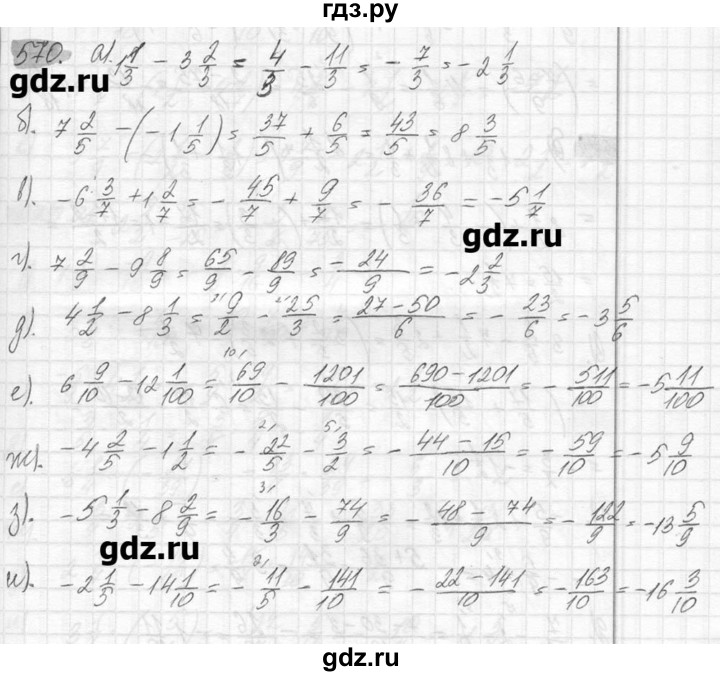 гдз.ру
570. а). 1 1/3 - 3 2/3 = 4/3 - 11/3 = - 7/3 = - 2 1/3
gdz.ru
б). 7 2/5 - (- 1 1/5) = 37/5 + 6/5 = 43/5 = 8 3/5
в). - 6 3/7 + 1 2/7 = - 45/7 + 9/7 = - 36/7 = - 5 1/7
gdz.ru
г). 7 2/9 - 9 8/9 = 65/9 - 89/9 = - 24/9 = - 2 2/3
д). 4 1/2 - 8 1/3 = 9/2 - 25/3 = 27 - 50/6 = - 23/6 = - 3 5/6
е). 6 9/10 - 12 1/100 = 69/10 - 1201/100 = 690 - 1201/100 = - 511/100 = - 5 11/100
ж). - 4 2/5 - 1 1/2 = - 22/5 - 3/2 = - 44 - 15/10 = - 59/10 = - 5 9/10
з). - 5 1/3 - 8 2/9 = - 16/3 - 74/9 = - 48 - 74/9 = - 122/9 = - 13 5/9
gdz.ru
и). - 2 1/5 - 14 1/10 = - 11/5 - 141/10 = - 22 - 141/10 = - 163/10 = - 16 3/10
gdz.ru